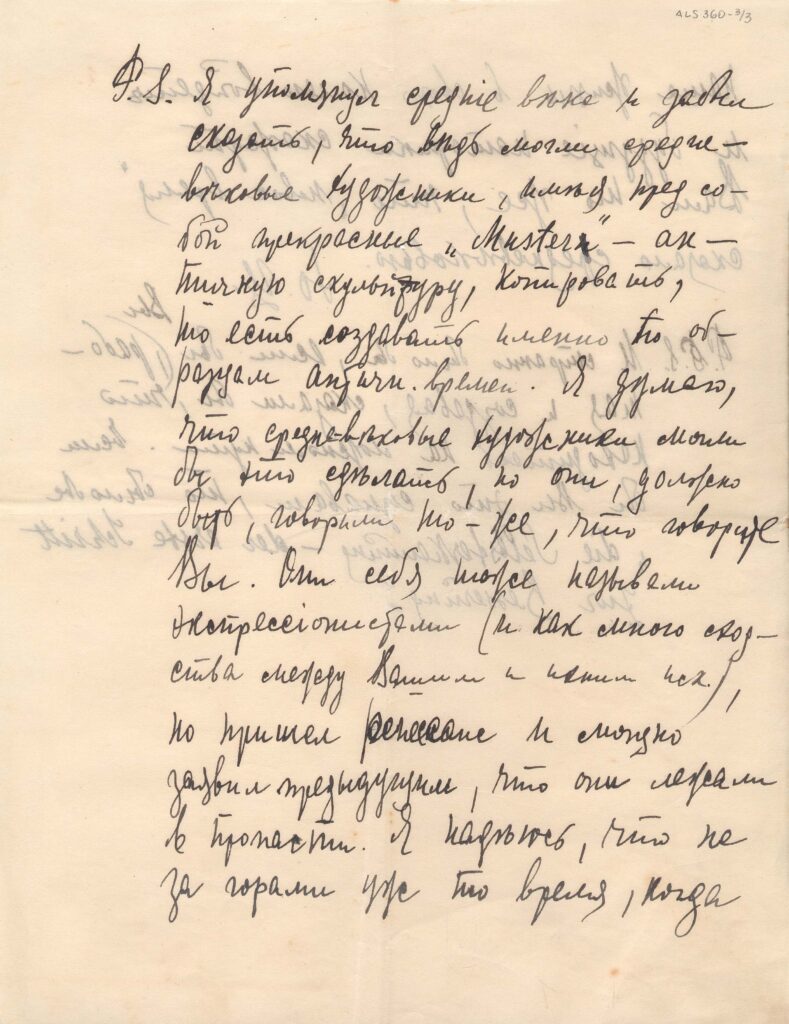 ALS 360-3/3
P.S. Я упомянул средніе вѣка и забыл
сказать, что вѣдь могли средне-
вѣковые художники, имѣя пред со-
бой прекрасные „Mustern“ – ан-
тичную скульптуру, копировать,
то есть создавать именно по об-
разцам античн. времен. Я думаю,
что средневѣковые художники могли
бы это сдѣлать, но они, должно
быть, говорили то-же, что говорите
Вы. Они себя тоже называли
экспрессіонистами (и как много сход-
ства между Вашим и иск.),
но пришел ренессанс и мощно
заявил предыдущим, что они лежали
в пропасти. Я надѣюсь, что не
за горами уж то время, когда